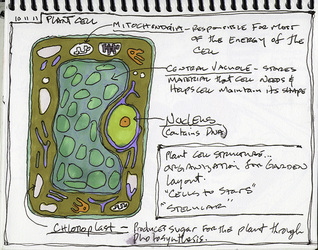 10.11.11 PLANT CELL
MITOCHONDRIA - RESPONSIBLE FOR MOST
OF THE ENERGY OF THE
CELL
CENTRAL VACUOLE - STORES
MATERIAL THAT CELL NEEDS &
HELPS CELL MAINTAIN ITS SHAPE
NUCLEUS
(CONTAINS DNA)
PLANT CELL STRUCTURES...
ORGANIZATION FOR GARDEN
LAYOUT.
"CELLS TO STARS"
"STELLULAR"
CHLOROPLAST - PRODUCES SUGAR FOR THE PLANT THROUGH
PHOTOSYNTHESIS.